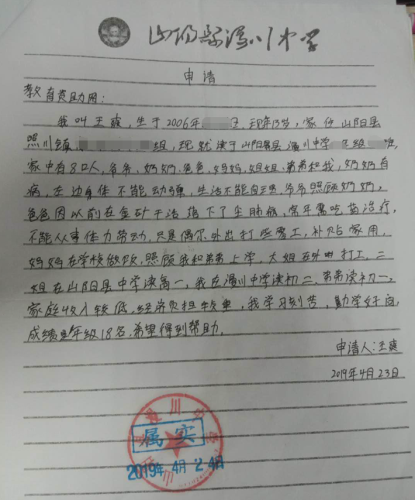 山阳县漫川中学
申请
教育资助网：
我叫王爽，生于2006年 现年13岁，家住山阳县
照川镇 组，现就读于山阳县漫川中学 班
家中有8口人，爷爷，奶奶，爸爸，妈妈，姐姐，弟弟和我，奶奶有
病，左边身体不能动弹，生活不能自理，爷爷照顾奶奶。
爸爸因以前在金矿干活搞下了尘肺病，常年需吃药治疗，
不能从事体力劳动，只是偶尔外出打些零工，补贴家用，
妈妈在学校做饭，照顾我和弟弟上学，大姐在外打工，二
姐在山阳县中学读高一，我在漫川中学读初二，弟弟读初一，
家庭收入较低，经济负担较重，我学习刻苦，勤学好问，
成绩是年级18名，希望得到帮助。
申请人：王爽
2019年4月23日
川
属实
2019年4月24日